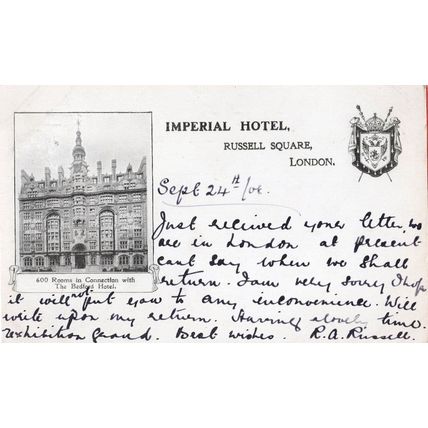 IMPERIAL HOTEL,
RUSSELL SQUARE,
LONDON.
Sept 24th/08.
600 Rooms in Connection with
The Bedford Hotel.
Just recieved your letter, we
are in London at present
cant say when we shall
return. I am very sorry I hope
it will not put you to any inconvenience. Will
write upon my return. Having a lovely time.
Exhibition grand. Best wishes. R.A. Russell.